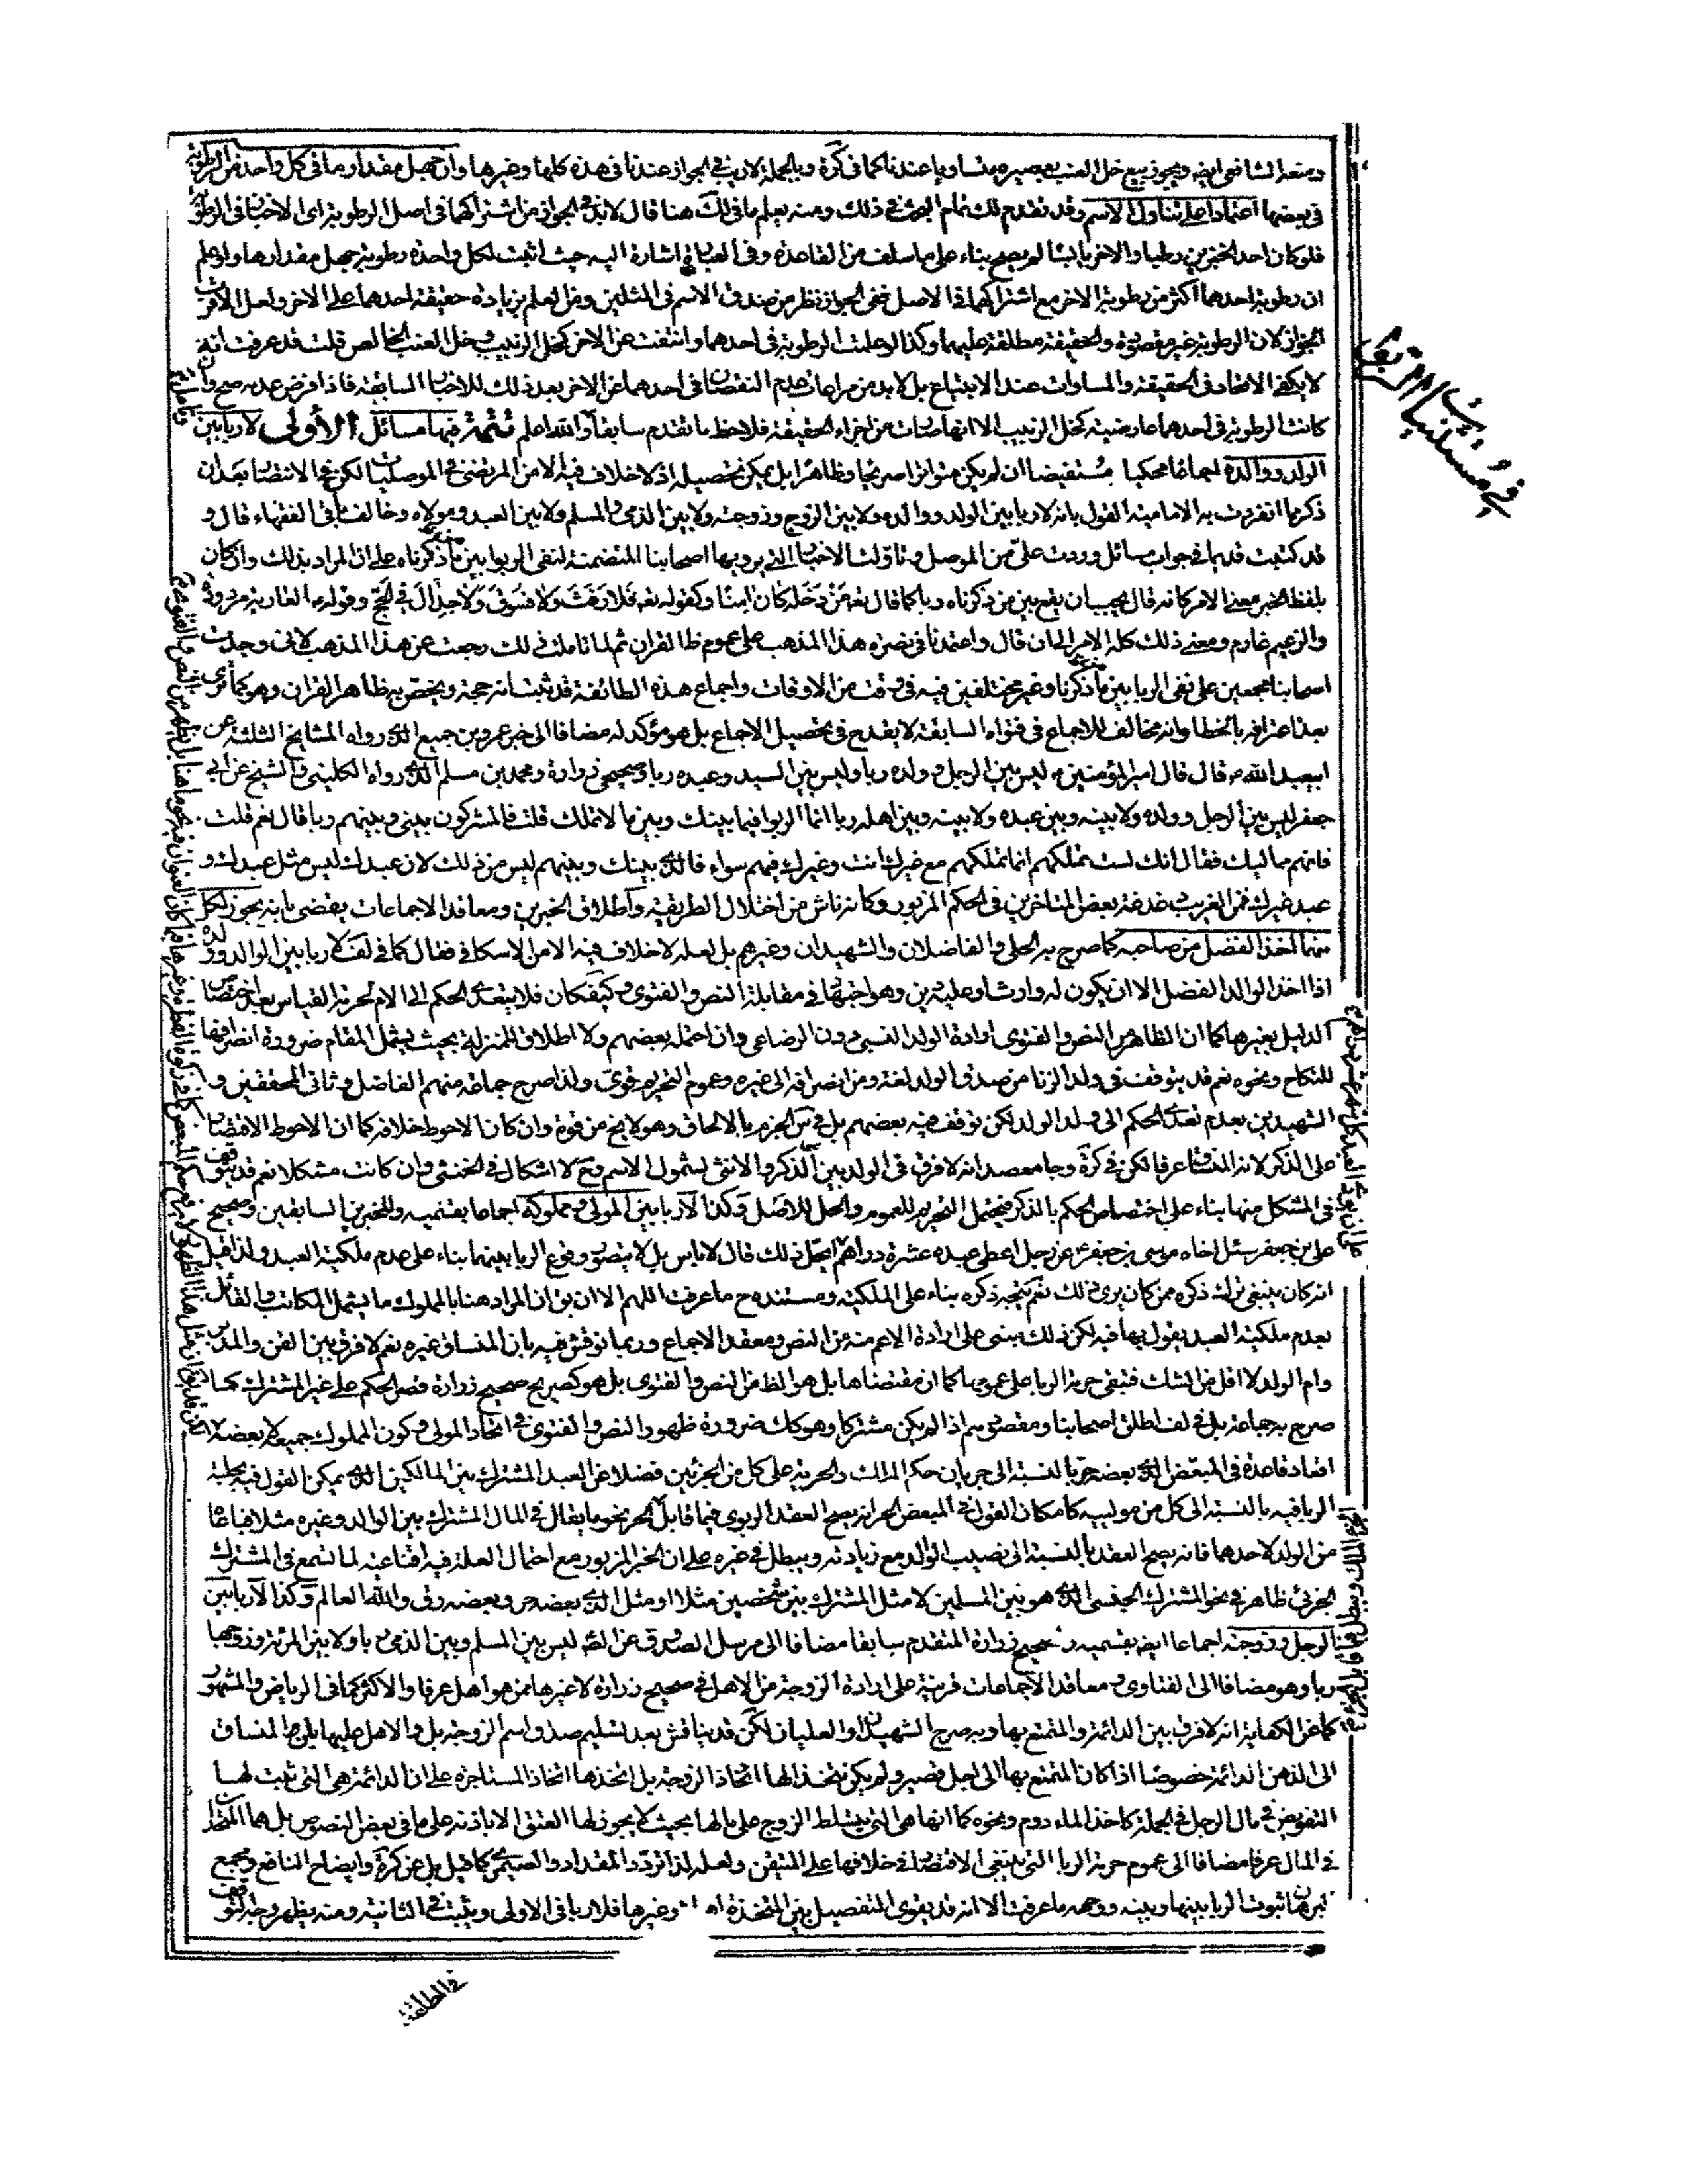 في مستثنيات الربا
ومنعه الشافعي ايضه ويجوز بيع خل العنب بعصيره متساويا عندنا كما في كرة وبالجملة لاريب في الجواز عندنا في هذه كلها وغيرها وان جهل مقدار ما في كل واحد من الرطوبة
في بعضها اعتمادا على تناول الاسم وقد تقدم لك تمام البحث في ذلك ومنه يعلم ما في لك هنا قال لابد في الجواز من اشتراكهما في اصل الرطوبة اى الاختبار في الرطوبة
فلو كان احد الخبزين رطبا والاخر يابسا لم يصح بناء على ما سلف من القاعدة وفي العبارة اشارة اليه حيث اثبت لكل واحدة رطوبة جهل مقدارها ولو علم
ان رطوبة احدهما اكثر من رطوبة الاخر مع اشتراكهما في الاصل ففي الجواز نظر من صدق الاسم في المثلين ومن العلم بزيادة حقيقة احدهما على الاخر ولعل الاقرب
الجواز لان الرطوبة غير مقصودة والحقيقة مطلقة عليهما وكذا لو علمت الرطوبة في احدهما وانتفت عن الاخر كخل الزبيب وخل العنب الخالص قلت قد عرفت انه
لا يكفي الاتحاد في الحقيقة والمساوات عند الابتياع بل لابد من مراعاة عدم النقصان في احدهما عن الاخر بعد ذلك للاخبار السابقة فاذا فرض عدمه صح وان
كانت الرطوبة في احدهما عارضية كخل الزبيب الا انها صارت من اجزاء الحقيقة فلاحظ ما تقدم سابقا والله اعلم تتمة فيها مسائل الأولى لا ربا بين
الولد ووالده اجماعا محكيا مستفيضا ان لم يكن متواترا صريحا وظاهرا بل يمكن تحصيله اذ لا خلاف فيه الا من المرتضى في الموصليات لكن في الانتصار بعد ان
ذكر ما انفردت به الامامية القول بانه لا ربا بين الولد ووالده ولا بين الزوج وزوجته ولا بين الذمي والمسلم ولا بين العبد ومولاه وخالف باقي الفقهاء قال و
قد كتبت قديما في جواب مسائل وردت على من الموصل وتاولت الاخبار التي يرويها اصحابنا المتضمنة لنفى الربوا بين من ذكرناه على ان المراد بذلك وان كان
بلفظ الخبر معنى الامر كانه قال يجب ان لا يقع بين من ذكرناه ربا كما قال تعه من دخله كان امنا وكقوله تعه فلا رفث ولا فسوق ولا جدال في الحج وقوله العارية مردودة
والزعيم غارم ومعنى ذلك كله الامر الى ان قال واعتمدنا في نصرة هذا المذهب على عموم ظا القران ثم لما تاملت ذلك رجعت عن هذا المذهب لانى وجدت
اصحابنا مجمعين على نفى الربا بين من ذكرنا وغير مختلفين فيه في وقت من الاوقات واجماع هذه الطائفة قد ثبت انه حجة ويخص به ظاهر القران وهو كما ترى
بعد اعترافه بالخطا وانه مخالف للاجماع في فتواه السابقة لا يقدح في تحصيل الاجماع بل هو مؤكد له مضافا الى خبر عمرو بن جميع الذى رواه المشايخ الثلثة عن
ابيعبد الله ع قال قال امير المؤمنين ع ليس بين الرجل وولده ربا وليس بين السيد وعبده ربا وصحيح زرارة ومحمد بن مسلم الذى رواه الكليني والشيخ عن ابي
جعفر ليس بين الرجل وولده ولا بينه وبين عبده ولا بينه وبين اهله ربا انما الربوا فيما بينك وبين ما لا تملك قلت فالمشركون بيني وبينهم ربا قال نعم قلت
فانهم مماليك فقال انك لست تملكهم انما تملكهم مع غيرك انت وغيرك فيهم سواء فالذى بينك وبينهم ليس من ذلك لان عبدك ليس مثل عبدك و
عبد غيرك فمن الغريب خدشة بعض المتاخرين في الحكم المزبور وكانه ناش من اختلال الطريقة واطلاق الخبرين ومعاقد الاجماعات يقضى بانه يجوز لكل
منهما اخذ الفضل من صاحبه كما صرح به الحلى والفاضلان والشهيدان وغيرهم بل لعله لا خلاف فيه الا من الاسكافي فقال كما في لف لا ربا بين الوالد وولده
اذا اخذ الوالد الفضل الا ان يكون له وارث او عليه دين وهو اجتهاد في مقابلة النص والفتوى وكيف كان فلا يتعدى الحكم الى الام لحرمة القياس بعد اختصاص
الدليل بغيرها كما ان الظاهر من النص والفتوى ارادة الولد النسبي دون الرضاعي وان احتمله بعضهم ولا اطلاق للمنزلة بحيث يشمل المقام ضرورة انصرافها
للنكاح ونحوه نعم قد يتوقف في ولد الزنا من صدق الولد لغة ومن انصرافه الى غيره وعموم التحريم قوى ولذا صرح جماعة منهم الفاضل وثاني المحققين و
الشهيدين بعدم تعدى الحكم الى ولد الولد لكن توقف فيه بعضهم بل في س الجزم بالالحاق وهو لا يخ من قوة وان كان الاحوط خلافه كما ان الاحوط الاقتصار
على الذكر لانه المنساق عرفا لكن في كرة وجامع صد انه لا فرق في الولد بين الذكر والانثى لشمول الاسم وح لا اشكال في الخنثى وان كانت مشكلا نعم قد يتوقف
في المشكل منها بناء على اختصاص الحكم بالذكر فيحتمل التحريم للعموم والحل للاصل وكذا لا ربا بين المولى ومملوكه اجماعا بقسميه وللخبرين السابقين وصحيح
على بن جعفر سئل اخاه موسى بن جعفر ع عن رجل اعطى عبده عشرة دراهم ايحل ذلك قال لا باس بل لا يتصور وقوع الربا بينهما بناء على عدم ملكية العبد ولذا قيل
انه كان ينبغى ترك ذكره ممن كان يرى ذلك نعم يتجه ذكره بناء على الملكية ومستنده ح ما عرفت اللهم الا ان يق ان المراد هنا بالمملوك ما يشمل المكاتب والقائل
بعدم ملكية العبد يقول بها فيه لكن ذلك يبنى على ارادة الاعم منه من النص ومعقد الاجماع وربما نوقش فيه بان المنساق غيره نعم لا فرق بين القن والمدبر
وام الولد لا اقل من الشك فتبقى حرمة الربا على عمومها كما ان مقتضاها بل هو الظ من النص والفتوى بل هو كصريح صحيح زرارة قصر الحكم على غير المشترك كما
صرح به جماعة بل في لف اطلق اصحابنا ومقصودهم اذا لم يكن مشتركا وهو كك ضرورة ظهور النص والفتوى في اتحاد المولى وكون المملوك جميعه لا بعضه
افعاد قاعدة في المبعض الذى بعضه حر بالنسبة الى جريان حكم الملك والحرية على كل من الجزئين فضلا عن العبد المشترك بين المالكين الذى يمكن القول فيه بحلية
الربا فيه بالنسبة الى كل من موليه كامكان القول في المبعض الحر انه يصح العقد الربوى فيما قابل الحر نحو ما يقال في المال المشترك بين الوالد وغيره مثلا فباعا
من الولد لاحدهما فانه يصح العقد بالنسبة الى نصيب الوالد مع زيادته ويبطل في غيره على ان الخبر المزبور مع احتمال العلة فيه اقناعية لما تسمع في المشترك
الجزئي ظاهر في نحو المشترك الجنسى الذى هو بين المسلمين لا مثل المشترك بين شخصين مثلا او مثل الذى بعضه حر وبعضه رق والله العالم وكذا لا ربا بين
الرجل وزوجته اجماعا ايضه بقسميه وصحيح زرارة المتقدم سابقا مضافا الى مرسل الصدوق عن الص ليس بين المسلم وبين الذمى ربا ولا بين المرئة وزوجها
ربا وهو مضافا الى الفتاوى ومعاقد الاجماعات قرينة على ارادة الزوجة من الاهل في صحيح زرارة لا غيرها ممن هو اهل عرفا والاكثر كما في الرياض والمشهور
كما عن الكفاية انه لا فرق بين الدائمة والمتمتع بها وبه صرح الشهيدان والعليان لكن قد يناقش بعد تسليم صدق اسم الزوجة بل والاهل عليها بان المنساق
الى الذهن الدائمة خصوصا اذا كان المتمتع بها الى اجل قصير ولم يكن يتخذ الها اتخاذ الزوجة بل اتخذها اتخاذ المستاجرة على ان الدائمة هي التي ثبت لها
التفويض في مال الرجل في الجملة كاخذ الماء دوم ونحوه كما انها هي التي يتسلط الزوج على مالها بحيث لا يجوز لها العتق الا باذنه على ما في بعض النصوص بل هما المتحد
في المال عرفا مضافا الى عموم حرمة الربا التي ينبغى الاقتصار في خلافها على المتيقن ولعله لذا تردد المقداد والصيمرى كما قيل بل عن كرة وايضاح النافع ومجمع
البرهان ثبوت الربا بينها وبينه ووجهه ما عرفت الا انه قد يقوى التفصيل بين المتخذة اه وغيرها فلا ربا في الاولى ويثبت في الثانية ومنه يظهر وجه التوقف
في المطلقة